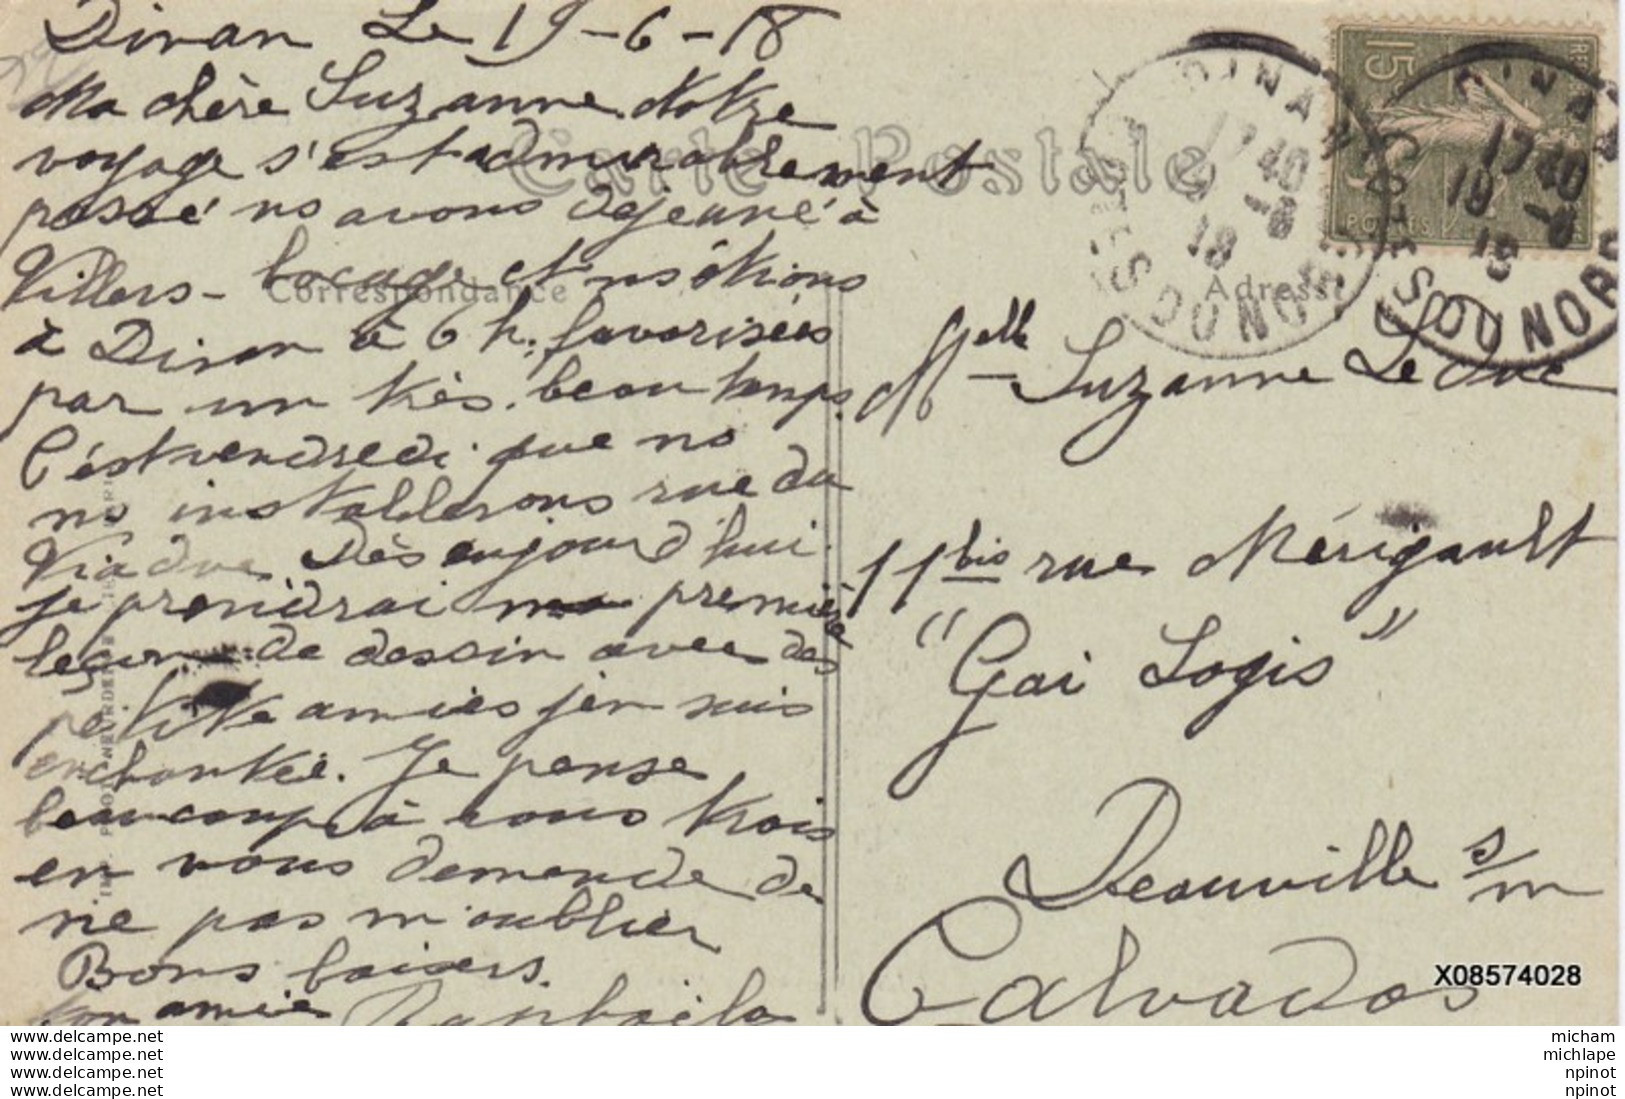 Dinan Le 19-6-18
Ma chère Suzanne Notre
voyage s'est admirablement
passé ns avons dejeuné à
Villers-bocage et ns étions
à Dinan à 6 h. favorisées
par un très beau temps.
C'est vendredi que ns
ns installerons rue du
Viaduc Dès aujourd'hui
je prendrai ma première
leçon de dessin avec des
petite amies j'en suis
enchantée. Je pense
beaucoup à vous trois
en vous demande de
ne pas m'oublier
Bons baisers.
Ton amie Raphaële
Carte Postale
Correspondance
Adresse
15
POSTES
DINAN
17 40
19 -6
18
COTES DU NORD
DINAN
17 40
19 -6
18
COTES DU NORD
Melle Suzanne Le Duc
11 bis rue Mérigault
"Gai Logis"
Deauville s/m
Calvados
X08574028
www.delcampe.net
www.delcampe.net
www.delcampe.net
www.delcampe.net
micham
michlape
npinot
npinot